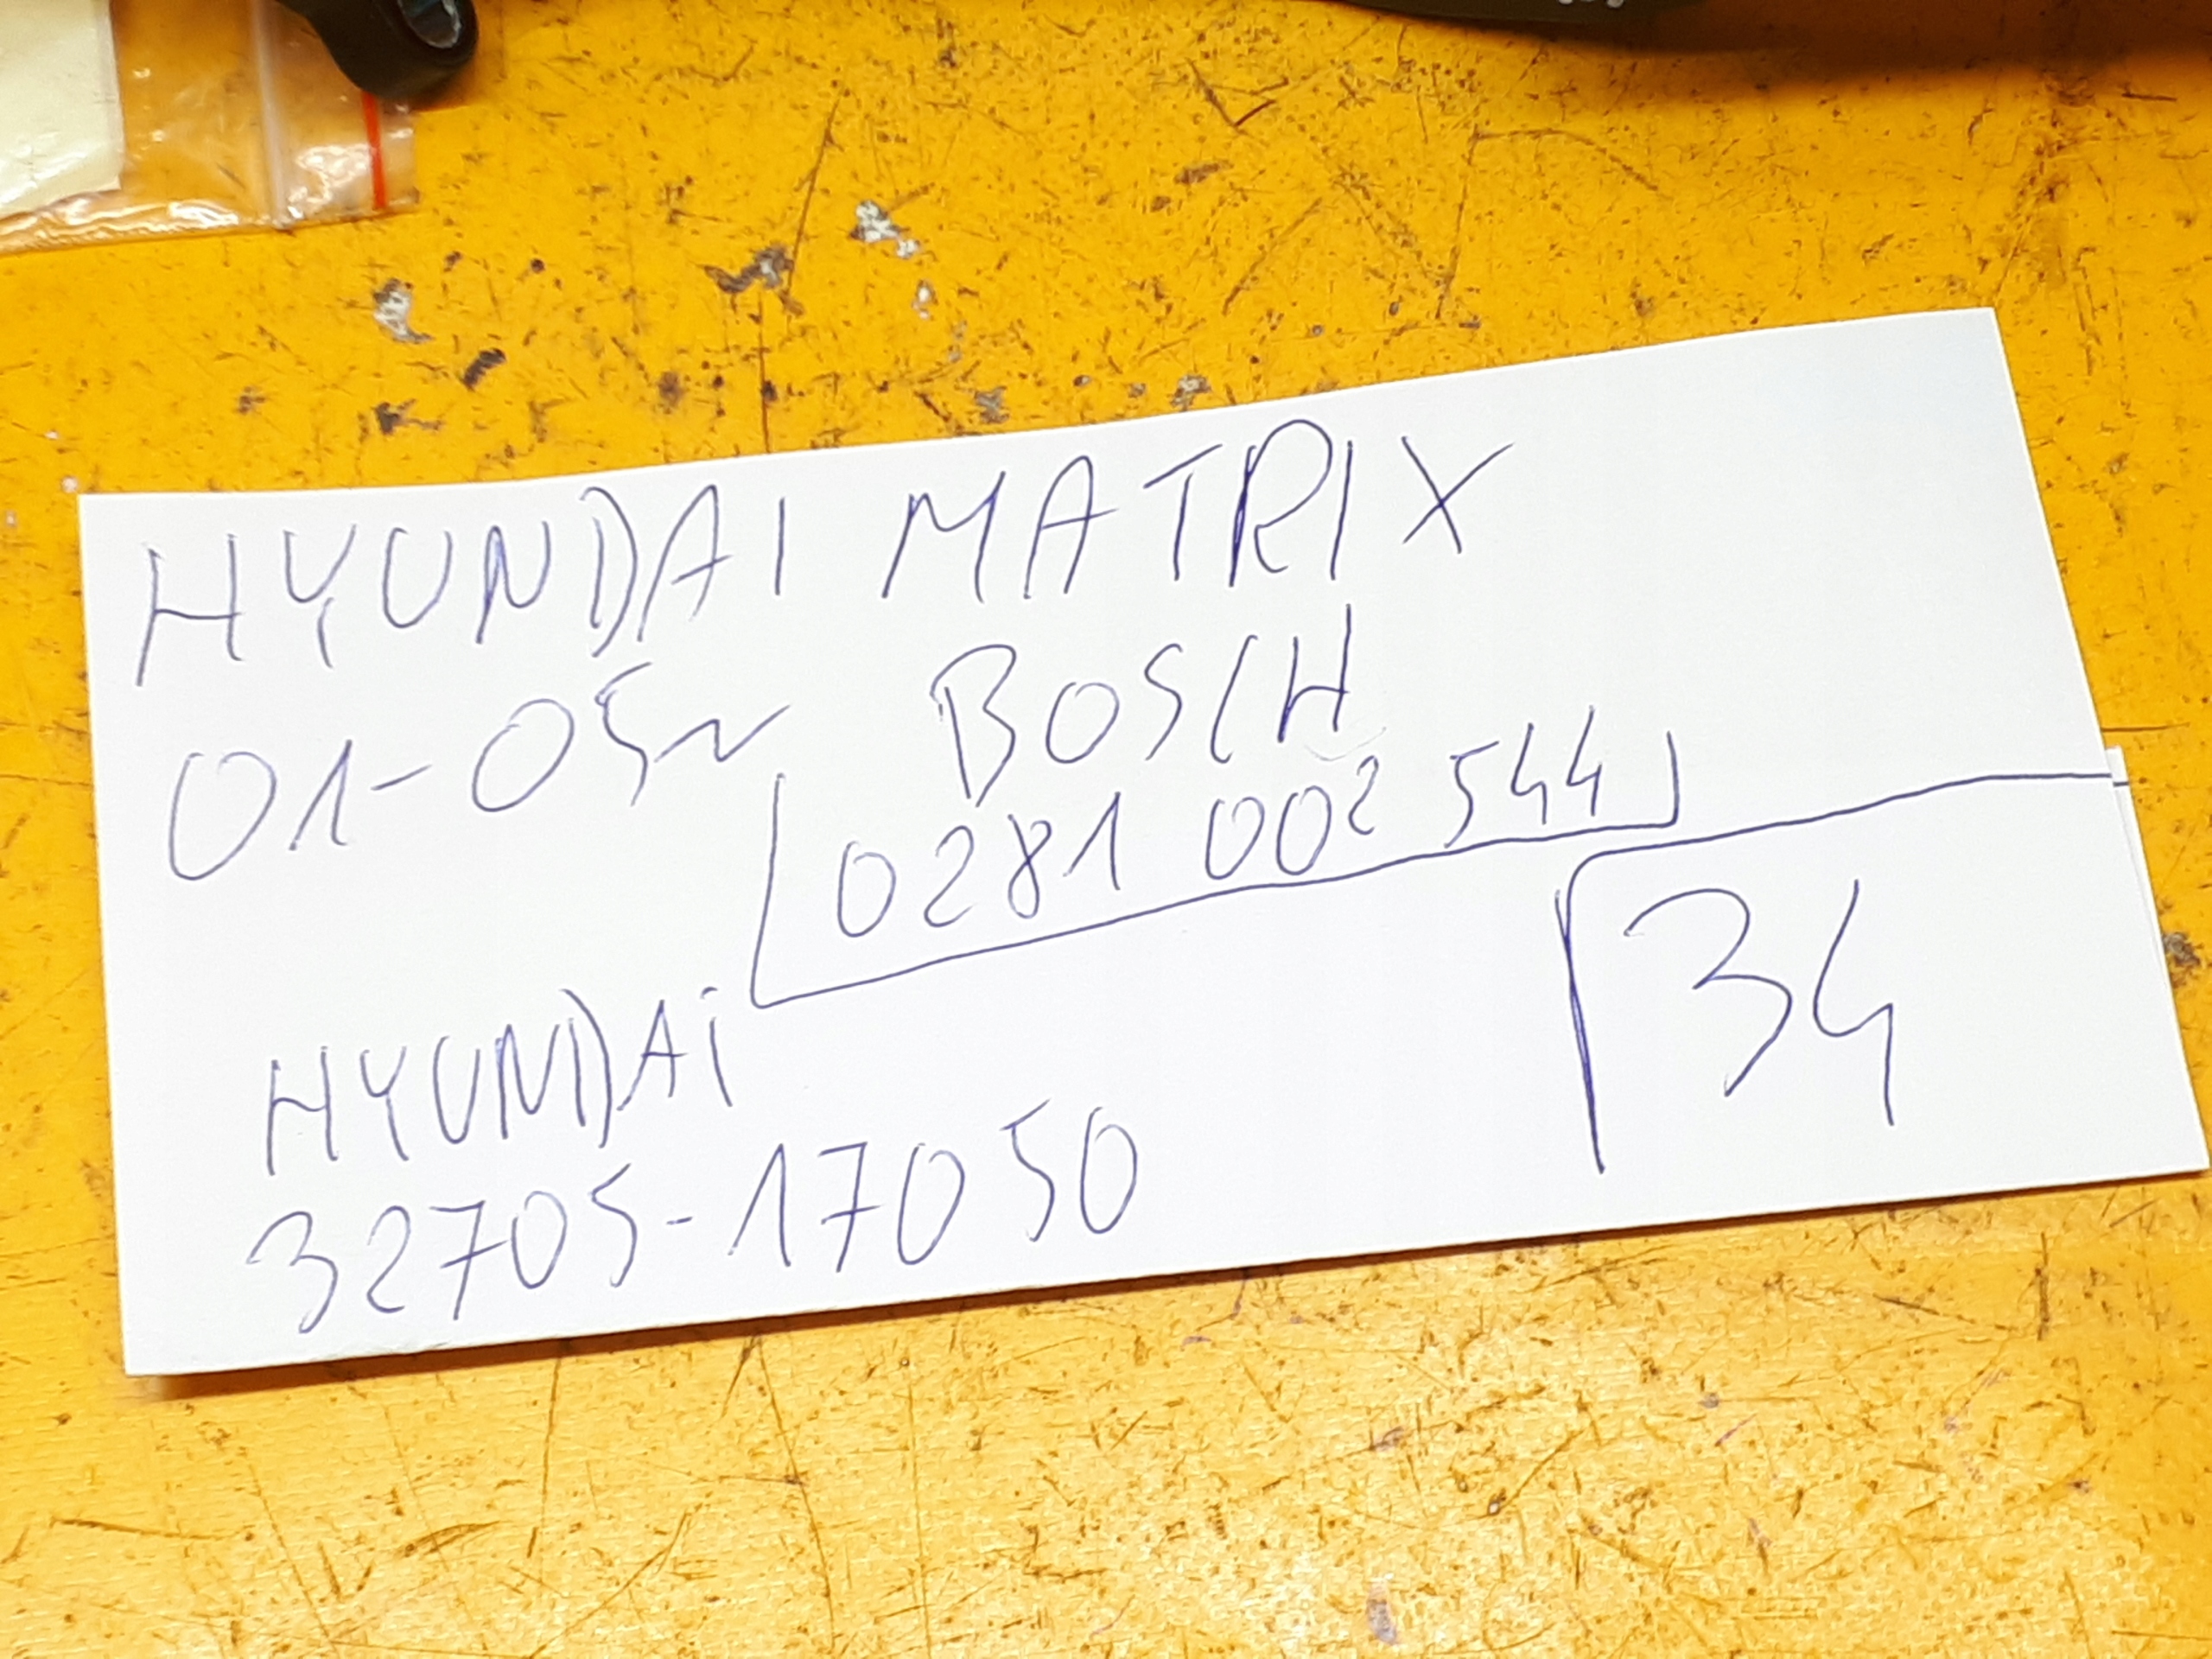 HYUNDAI MATRIX
01-05r BOSCH
0281 002 544
HYUNDAi
32705-17050
34